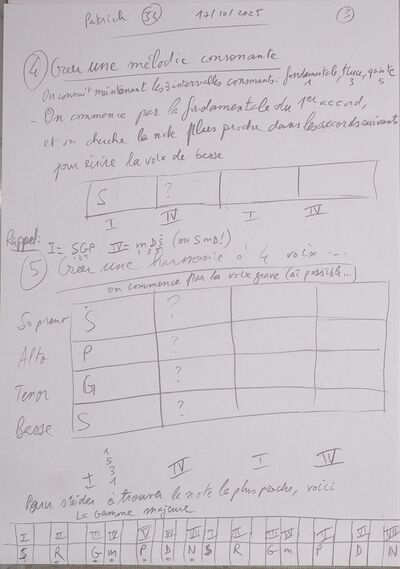 Patrick 17/10/2025 3
4 Créer une mélodie consonante
On connait maintenant les 3 intervalles consonants: fondamentale, tierce, quinte
1 3 5
- On commence par la fondamentale du 1er accord,
et on cherche la note plus proche dans les accords suivants
pour écrire la voix de basse
S ?
I IV I IV
Rappel: I = SGP IV = mDS (ou SmD!)
1 3 5 1 3 5
5 Créer une harmonie à 4 voix ...
on commence par la voix grave (si possible...)
Soprano S ?
Alto P ?
Tenor G ?
Basse S ?
1
5
3
I 1 IV I IV
Pour s'aider à trouver la note la plus proche, voici
la gamme majeure
I II III IV V VI VII I II III IV V VI VII
S R G m P D N S R G m P D N